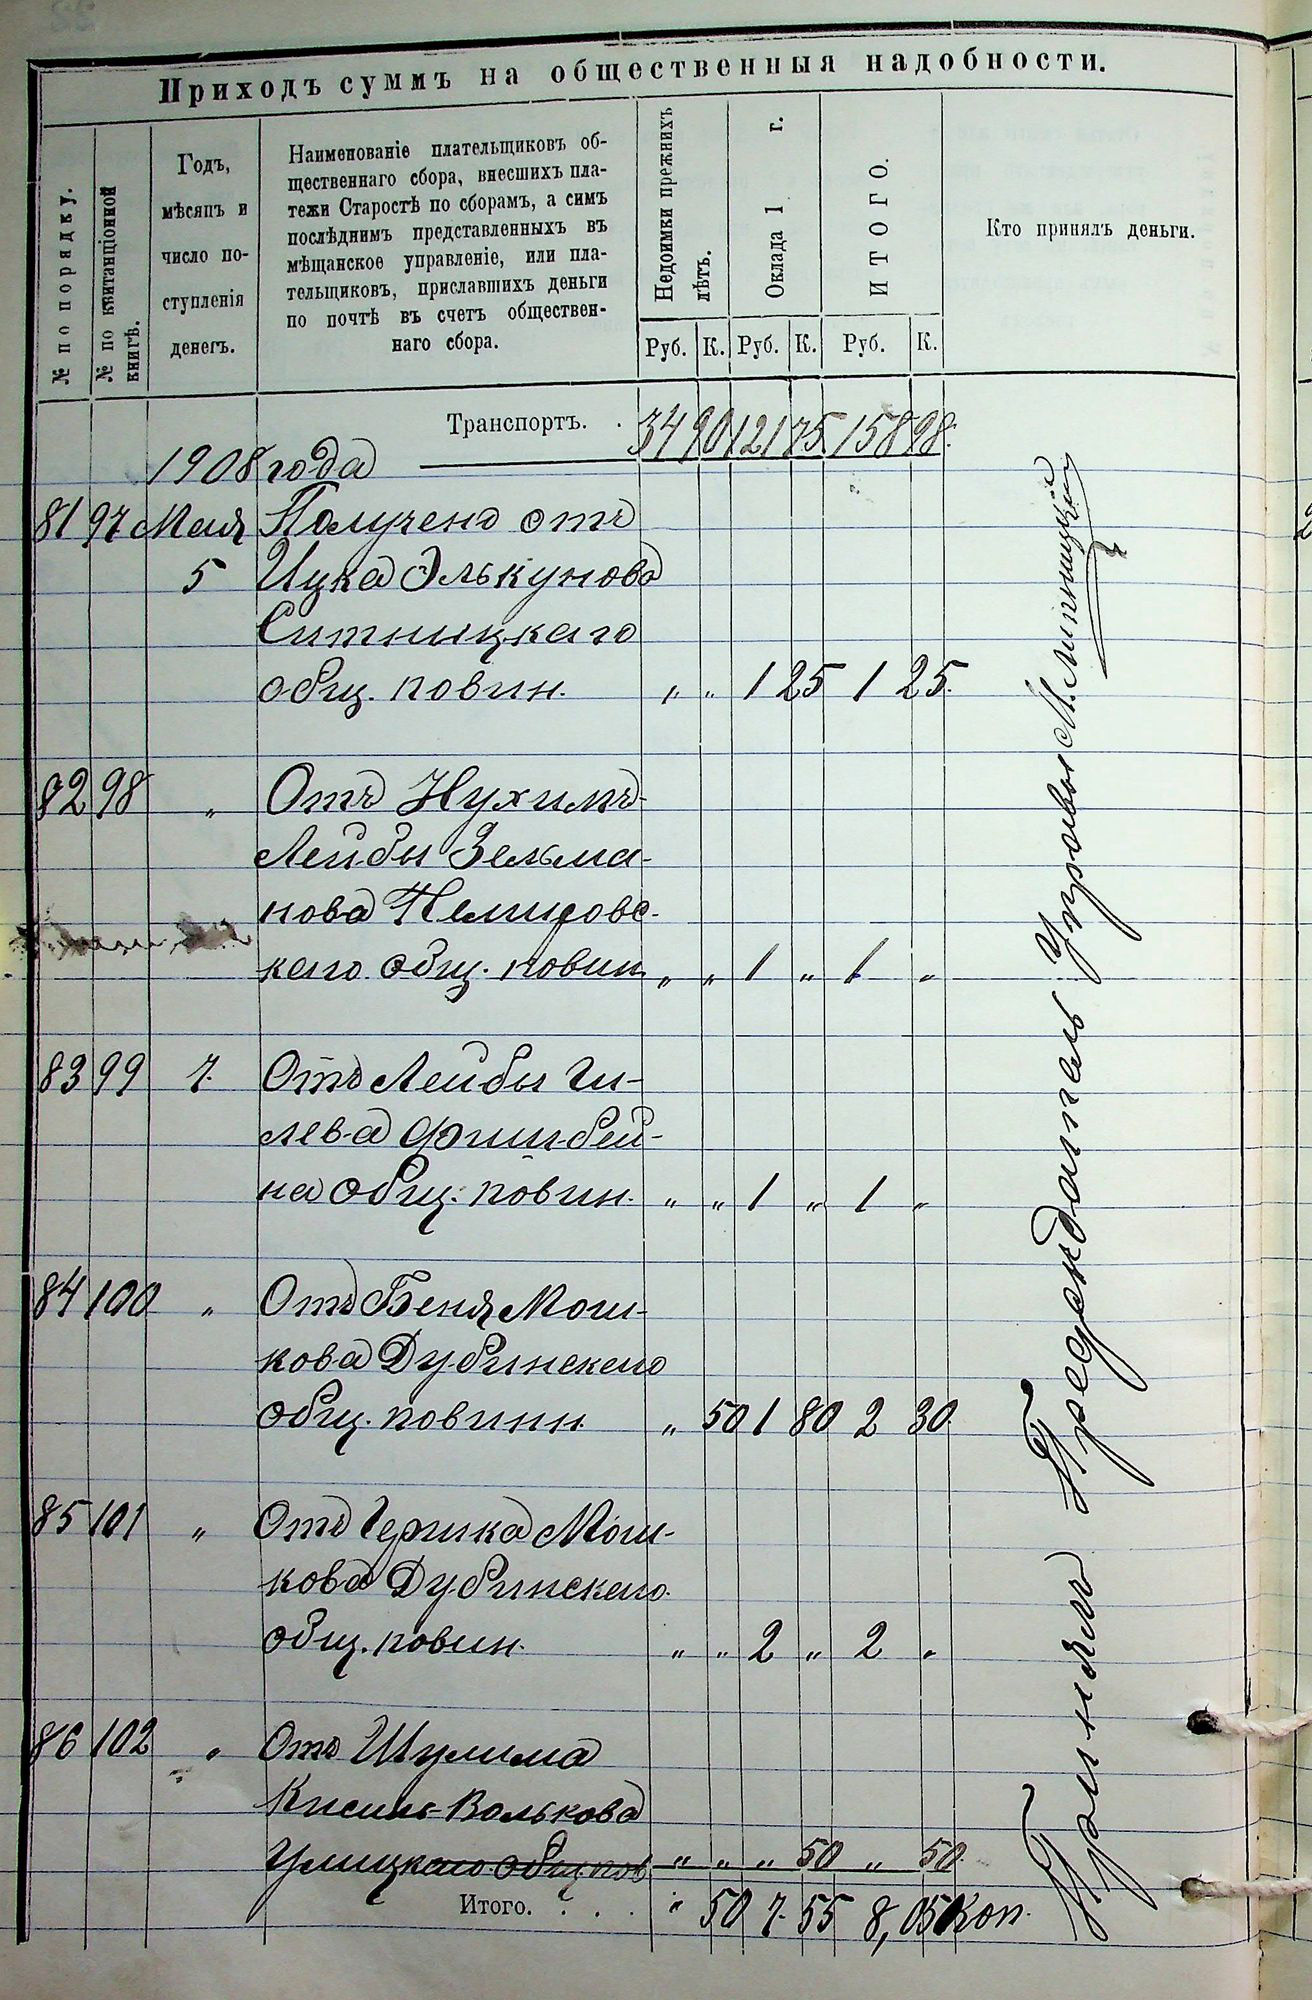 Приходъ суммъ на общественныя надобности.
№ по порядку.
№ по квитанціонной
книгѣ.
Годъ,
мѣсяцъ и
число по-
ступленія
денегъ.
Наименованіе плательщиковъ об-
щественнаго сбора, внесшихъ пла-
тежи Старостѣ по сборамъ, а симъ
послѣднимъ представленныхъ въ
мѣщанское управленіе, или пла-
тельщиковъ, приславшихъ деньги
по почтѣ въ счетъ обществен-
наго сбора.
Недоимки прежнихъ
лѣтъ.
Оклада 1 г.
ИТОГО.
Кто принялъ деньги.
Руб. К. Руб. К. Руб. К.
Транспортъ. . 34 90 121 75 158 98.
1908 года
81 97 Мая Получено отъ
5 Ицка Элькунова
Ситницкаго
общ. повин. „ „ 1 25 1 25.
82 98 „ Отъ Нухимъ-
Лейбы Зельма-
нова Немировс-
каго общ. повин „ „ 1 „ 1 „
83 99 7. Отъ Лейбы Ги-
лева Финбей-
на общ. повин. „ „ 1 „ 1 „
84 100 „ Отъ Беня Мош-
кова Дубинскаго
общ. повинн. „ 50 1 80 2 30.
85 101 „ Отъ Гершка Мош-
кова Дубинскаго
общ. повин. „ „ 2 „ 2 „
86 102 „ Отъ Шулима
Кисиль-Волькова
Улицкаго общ пов „ „ „ 50 „ 50.
Итого. . . . „ 50 7. 55 8,05 Коп.
Принялъ Предсѣдатель Управы М. Липницкій